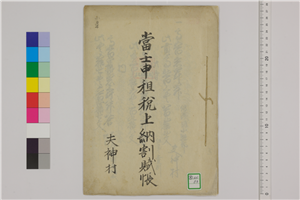 當壬申租税上納割賦帳
夫神村